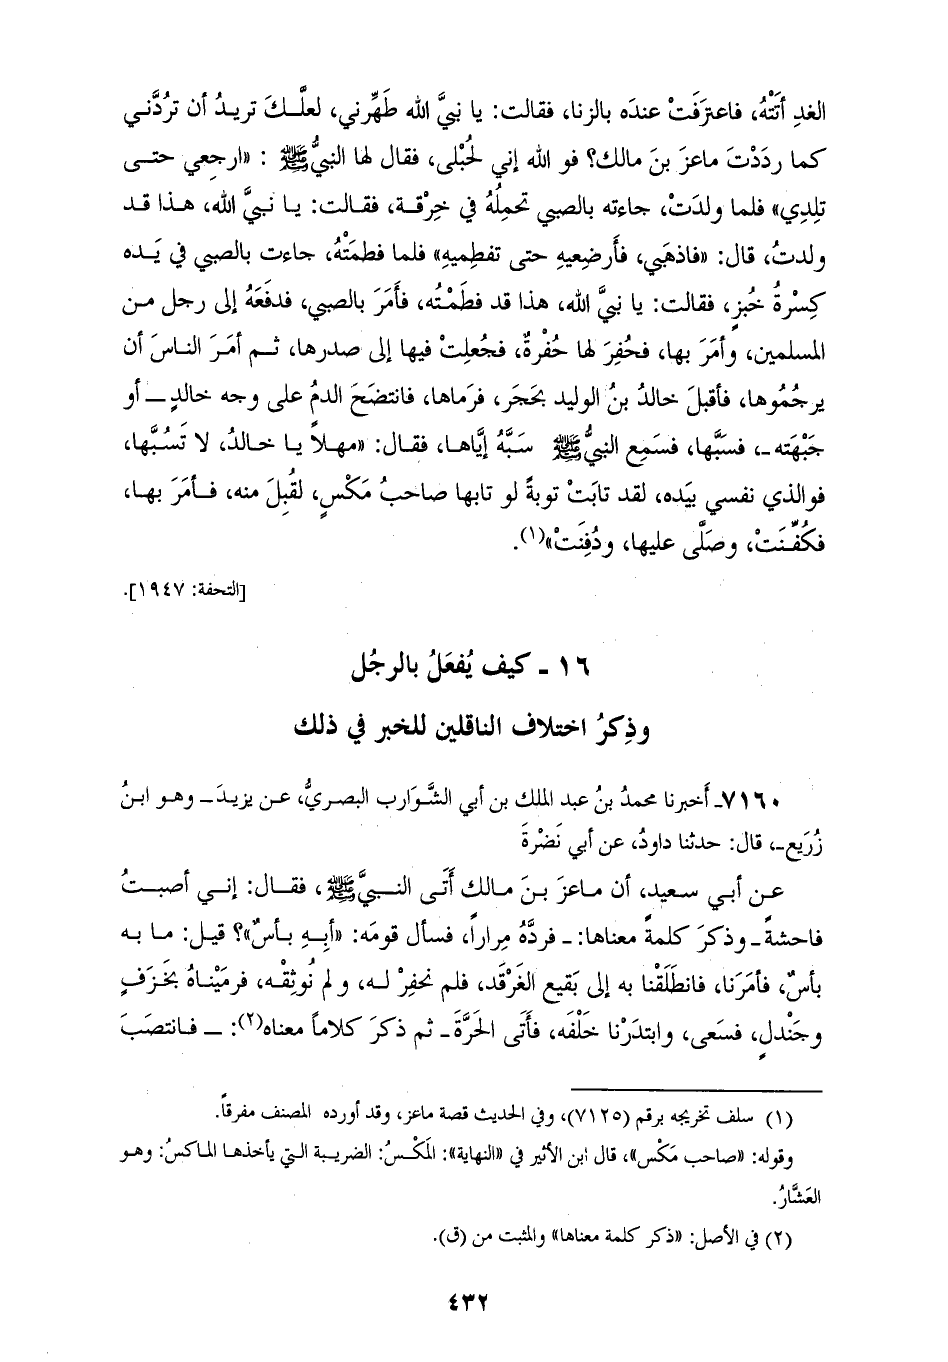 الغدِ أتَتْهُ، فاعترَفَتْ عندَه بالزنا، فقالت: يا نبيَّ الله طَهِّرني، لعلَّـكَ تريـدُ أن تردُّنـي
كما ردَدْتَ ماعزَ بنَ مالك؟ فو الله إني لحُبْلى، فقال لها النبيُّ ﷺ : «ارجعي حتـى
تلِدِي» فلما ولدَتْ، جاءته بالصبي تحمِلُهُ في خِرْقـة، فقـالت: يـا نبـيَّ الله، هـذا قـد
ولدتُ، قال: «فاذهَبي، فأَرضِعيهِ حتى تفطِميهِ» فلما فطمَتْهُ، جاءت بالصبي في يَـده
كِسْرةُ خُبزٍ، فقالت: يا نبيَّ الله، هذا قد فطَمْتُه، فأمَرَ بالصبي، فدفَعَهُ إلى رجل مـن
المسلمين، وأمَرَ بها، فحُفِرَ لها حُفْرةٌ، فجُعلِتْ فيها إلى صدرها، ثـم أمَرَ النـاسَ أن
يرجُمُوها، فأقبلَ خالدُ بنُ الوليد بحَجَر، فرَماها، فانتضَحَ الدمُ على وجه خالدٍ ــ أو
جَبْهَته ــ، فسَبَّها، فسَمِع النبيُّ ﷺ سَبَّهُ إيَّاهـا، فقـال: «مهـلاً يـا خـالدُ، لا تَسُبَّها،
فوالذي نفسي بيَده، لقد تابَتْ توبةً لو تابها صاحبُ مَكْسٍ، لقُبِلَ منه، فـأمَرَ بهـا،
فكُفِّنَتْ، وصَلَّى عليها، ودُفِنَتْ»(١).
[التحفة: ١٩٤٧].
١٦ ـ كيف يُفعَلُ بالرجُل
وذِكرُ اختلاف الناقلين للخبر في ذلك
٧١٦٠ـ أَخبرنا محمدُ بنُ عبد الملك بن أبي الشَّوَارب البصريُّ، عـن يزيـدَ ــ وهـو ابـنُ
زُرَيع ــ، قال: حدثنا داودُ، عن أبي نَضْرةَ
عـن أبـي سـعيد، أن مـاعزَ بـنَ مـالك أَتَى النـبيَّ ﷺ، فقـال: إنـي أصبـتُ
فاحشةً ــ وذكرَ كلمةً معناها: ــ فردَّهُ مِراراً، فسأل قومَه: «أَبِـهِ بـأسٌ»؟ قيـل: مـا بـه
بأسٌ، فأمَرَنا، فانطَلَقْنا به إلى بَقيع الغَرْقَد، فلم نحفِرْ لـه، ولم نُوثِقْـه، فرمَيْنـاهُ بخَزَفٍ
وجَندلٍ، فسَعى، وابتدَرْنا خلْفَه، فأَتَى الحَرَّةَ ـ ثم ذكرَ كلاماً معناه(٢): ــ فـانتصَبَ
(١) سلف تخريجه برقم (٧١٢٥)، وفي الحديث قصة ماعز، وقد أورده المصنف مفرقاً.
وقوله: «صاحب مَكْس»، قال ابن الأثير في «النهاية»: المَكْـسُ: الضريبـة الـتي يأخذهـا المـاكسُ: وهـو
العَشَّارُ.
(٢) في الأصل: «ذكر كلمة معناها» والمثبت من (ق).
٤٣٢